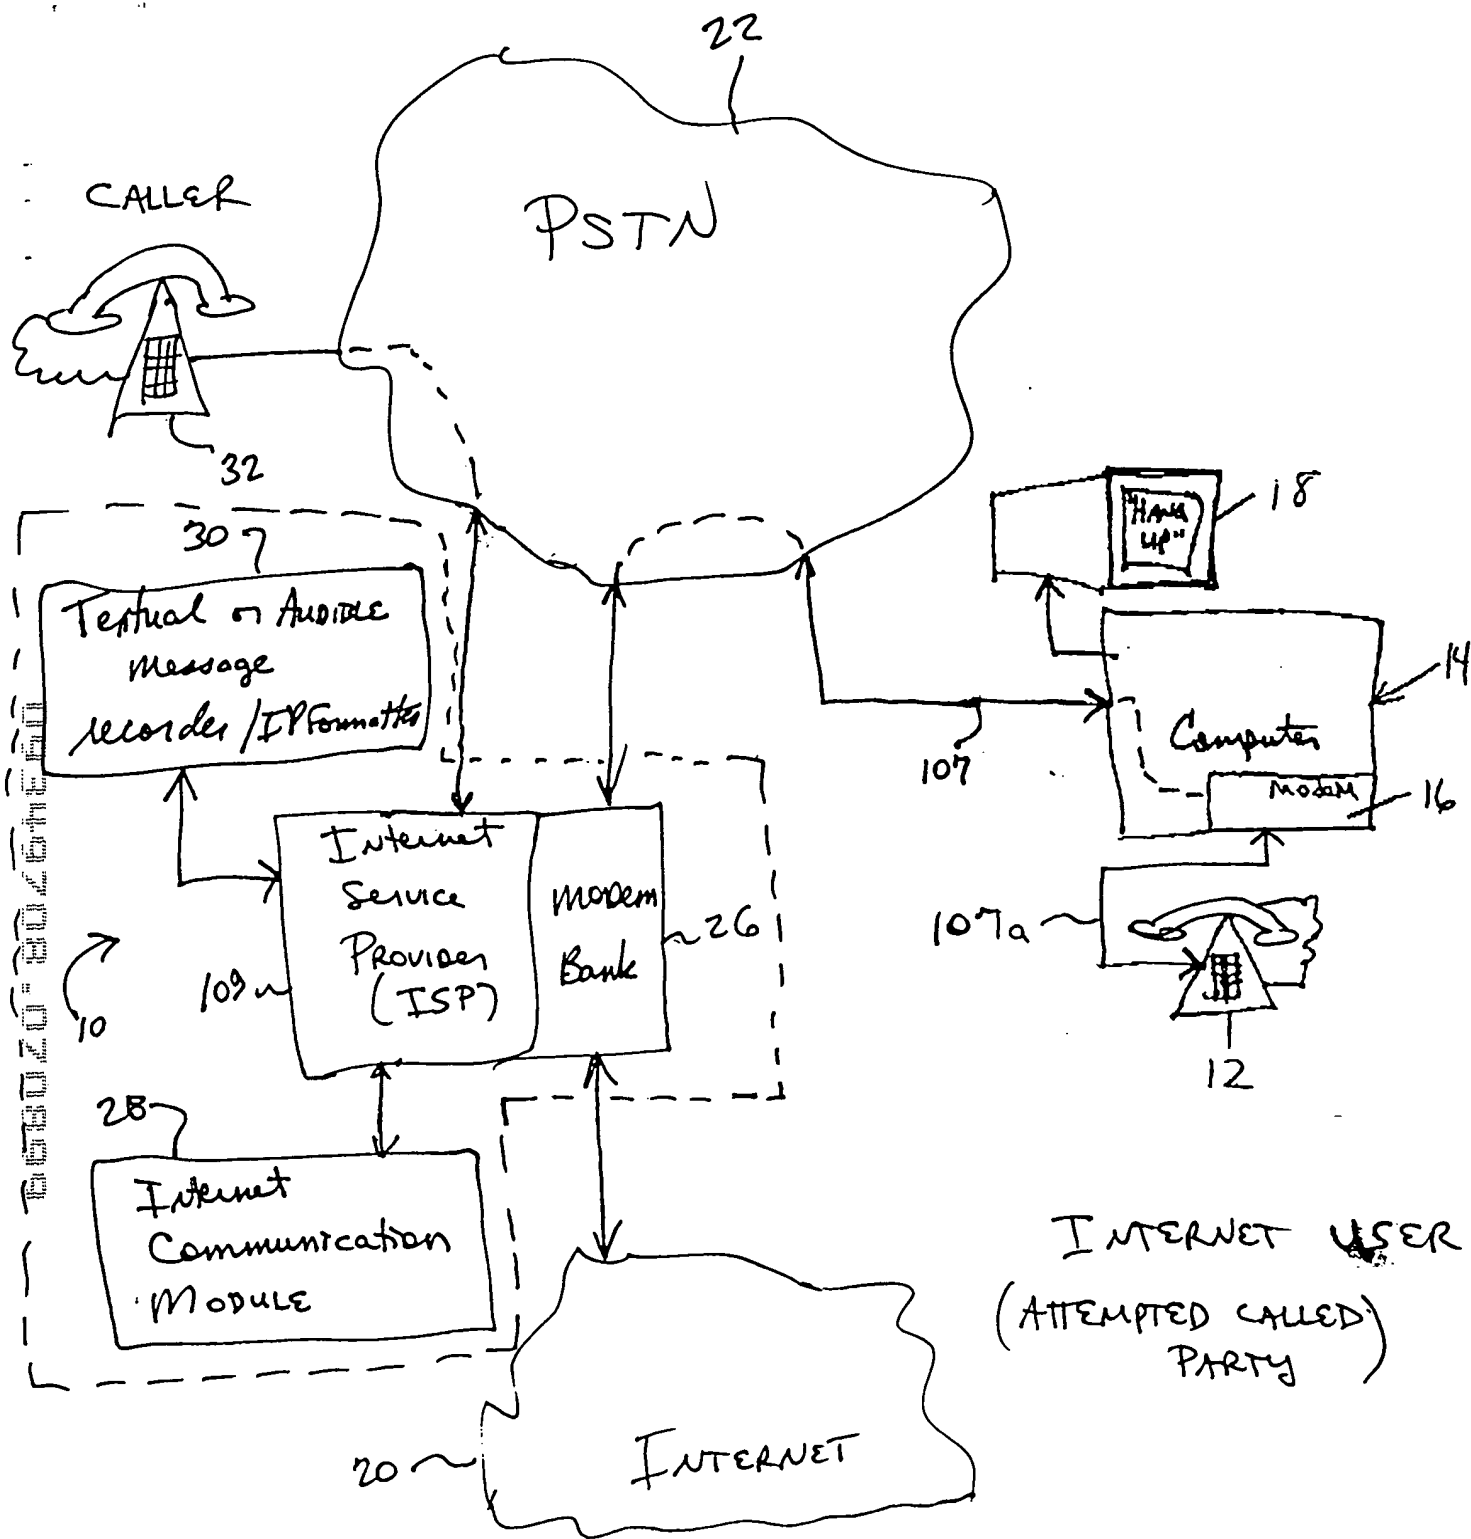 22
CALLER
PSTN
32
30
Textual or Audible
message
recorder / IP Formatter
18
"HANG
UP"
14
Computer
Modem
16
107
107a
12
Internet
Service
Provider
(ISP)
Modem
Bank
26
109
10
28
Internet
Communication
Module
INTERNET USER
(ATTEMPTED CALLED)
PARTY
20
INTERNET
09349708.070899